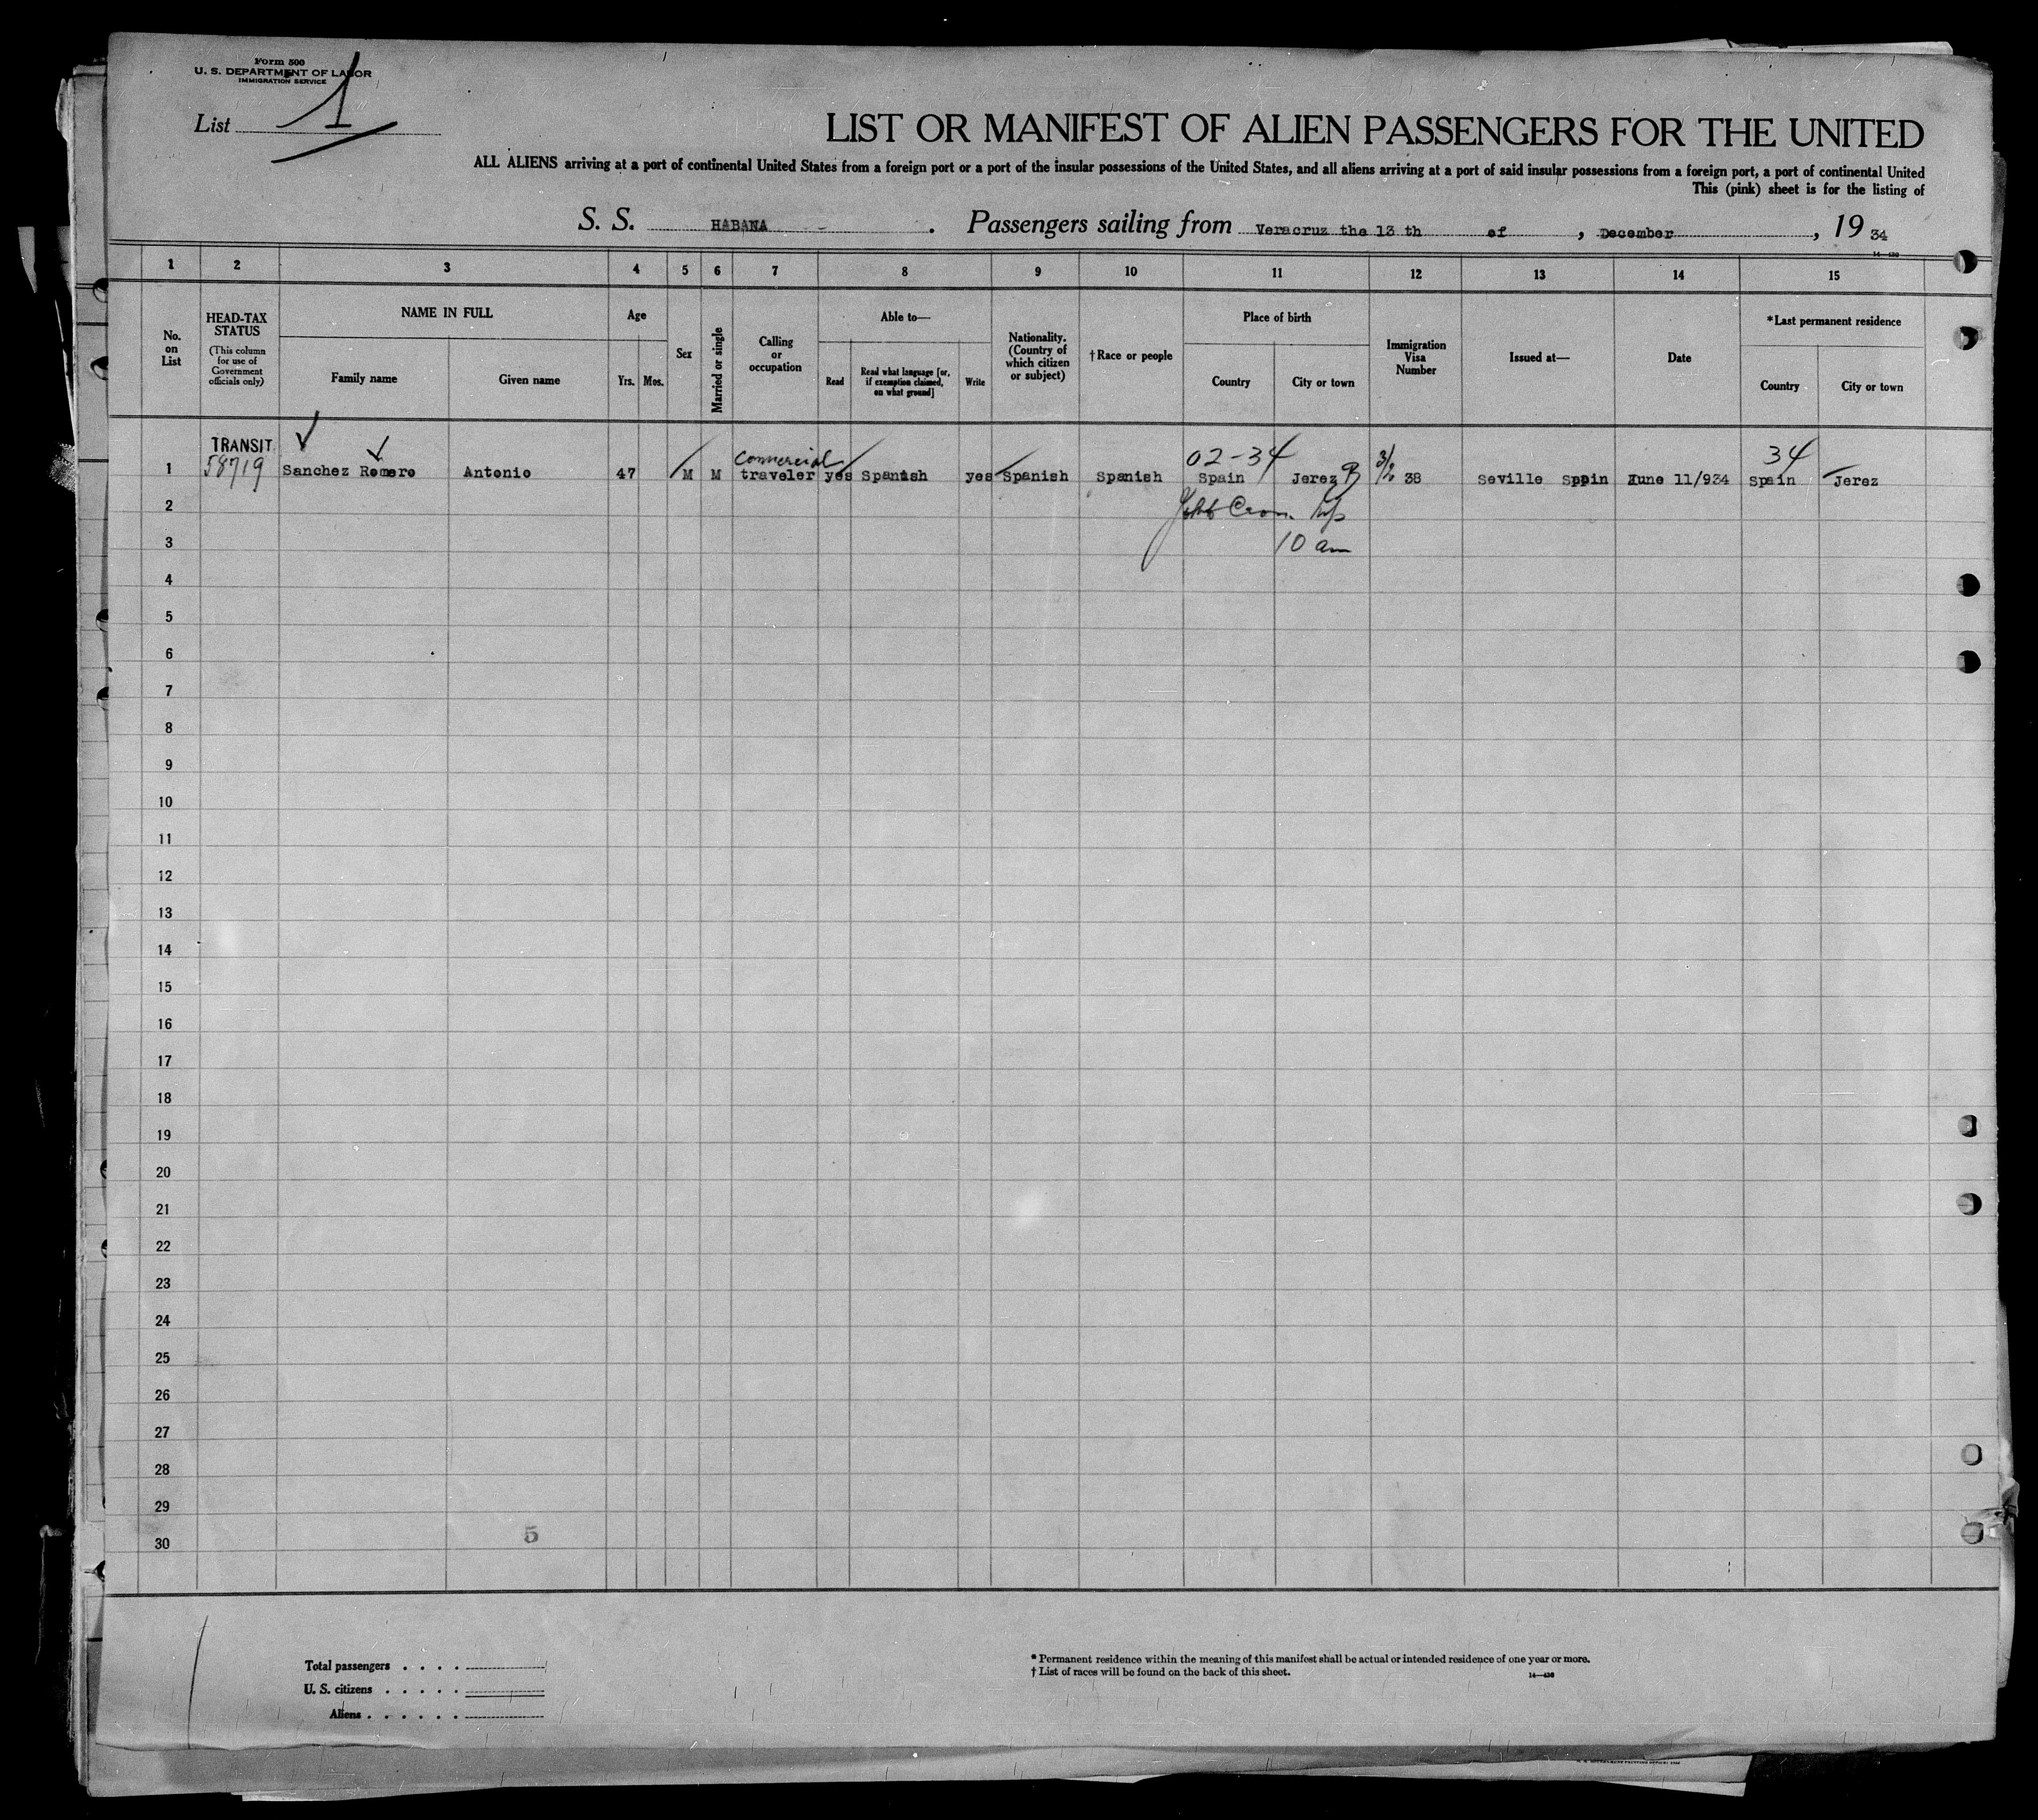 Form 500
U. S. DEPARTMENT OF LABOR
IMMIGRATION SERVICE
List 1
LIST OR MANIFEST OF ALIEN PASSENGERS FOR THE UNITED
ALL ALIENS arriving at a port of continental United States from a foreign port or a port of the insular possessions of the United States, and all aliens arriving at a port of said insular possessions from a foreign port, a port of continental United
This (pink) sheet is for the listing of
S. S. HABANA . Passengers sailing from Veracruz the 13 th of , December , 19 34
14—430
1 2 3 4 5 6 7 8 9 10 11 12 13 14 15
No. on List
HEAD-TAX STATUS
(This column for use of Government officials only)
NAME IN FULL
Family name
Given name
Age
Yrs. Mos.
Sex
Married or single
Calling or occupation
Able to—
Read
Read what language [or, if exemption claimed, on what ground]
Write
Nationality. (Country of which citizen or subject)
† Race or people
Place of birth
Country
City or town
Immigration Visa Number
Issued at—
Date
*Last permanent residence
Country
City or town
TRANSIT
commercial
02-34
34
1 58719 Sanchez Romero Antonio 47 M M traveler yes Spanish yes Spanish Spanish Spain Jerez 3/2 38 Seville Sppin June 11/934 Spain Jerez
2
3 10 am
4
5
6
7
8
9
10
11
12
13
14
15
16
17
18
19
20
21
22
23
24
25
26
27
28
29
5
30
Total passengers . . . .
U. S. citizens . . . . .
Aliens . . . . . .
* Permanent residence within the meaning of this manifest shall be actual or intended residence of one year or more.
† List of races will be found on the back of this sheet.
14—430